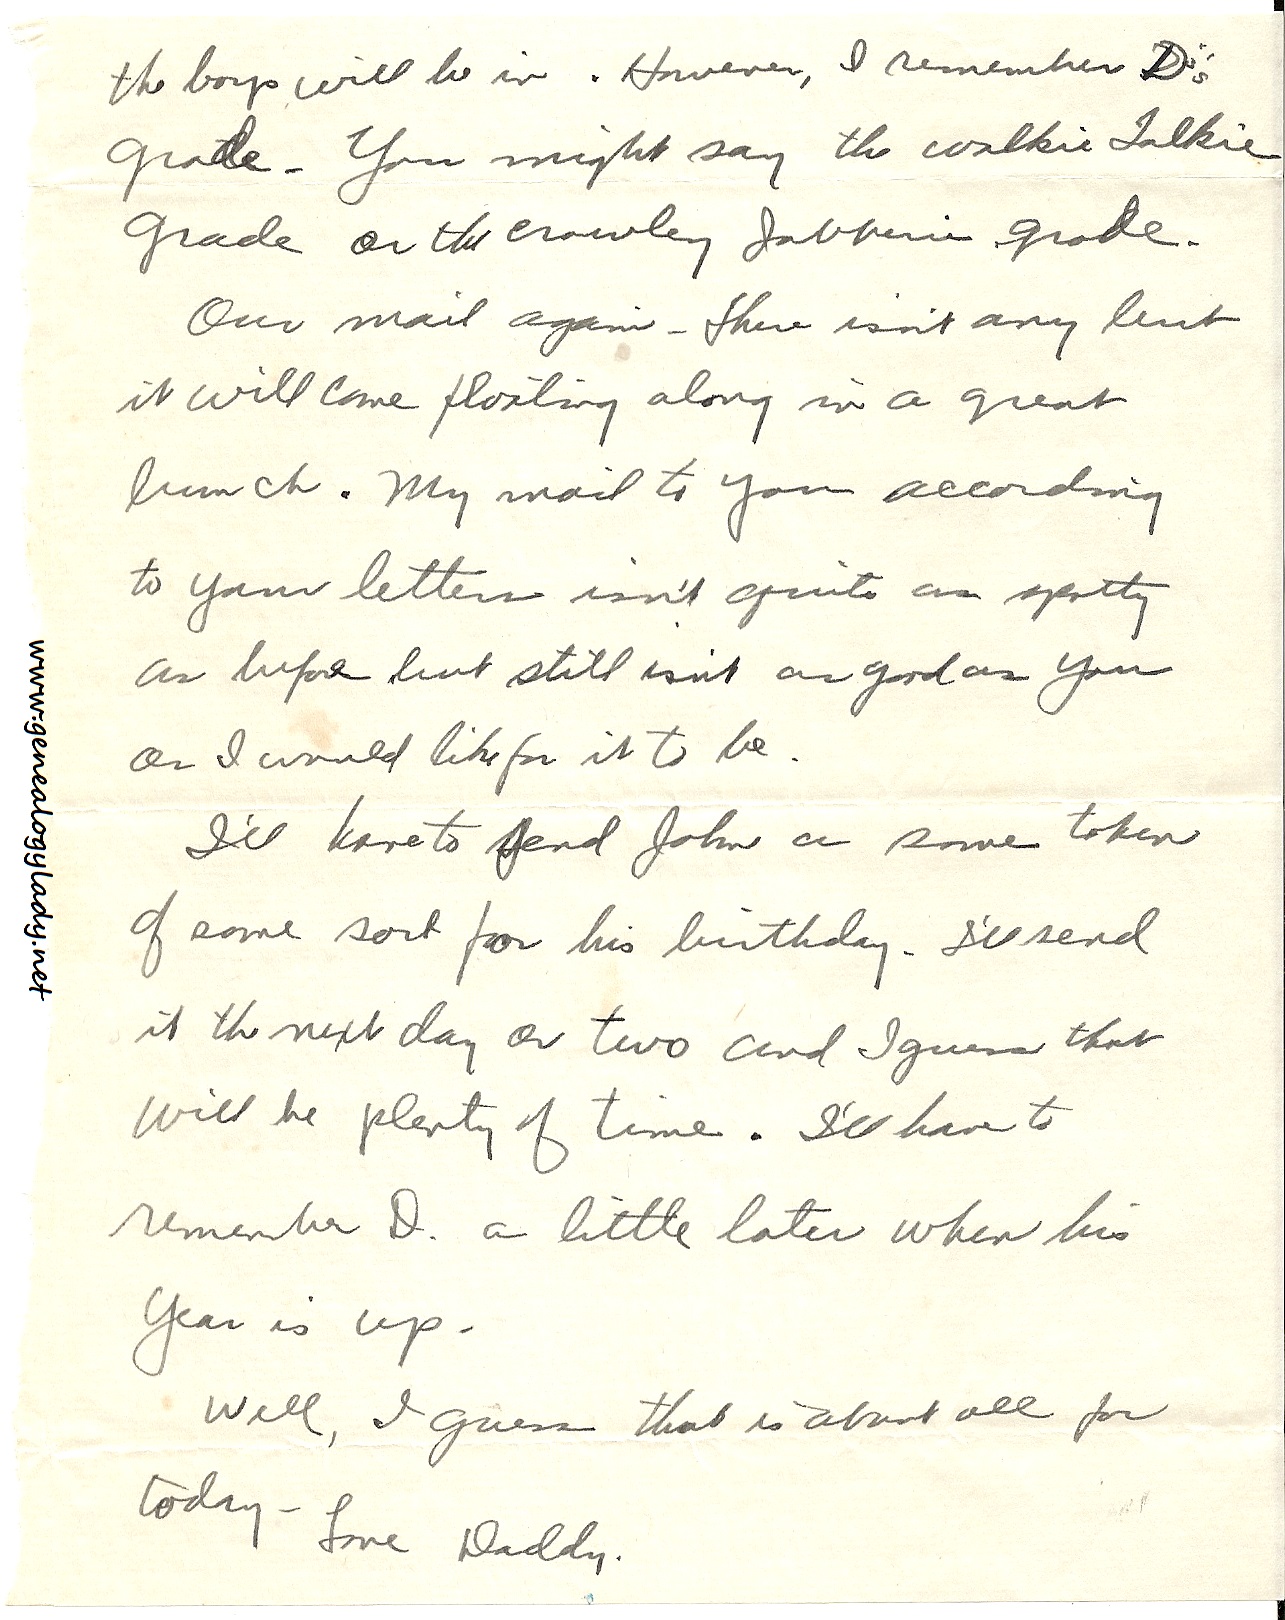 the boys will be in. However, I remember D's
grade - You might say the walkie Talkie
grade or the crawley Jabberie grade.
Our mail again - there isn't any but
it will come floating along in a great
bunch. My mail to you according
to your letters isn't quite as spotty
as before but still isn't as good as you
or I would like for it to be.
I'll have to send John a some token
of some sort for his birthday. I'll send
it the next day or two and I guess that
will be plenty of time. I'll have to
remember D. a little later when his
Year is up.
Well, I guess that is about all for
today - Love Daddy.
www.genealogylady.net